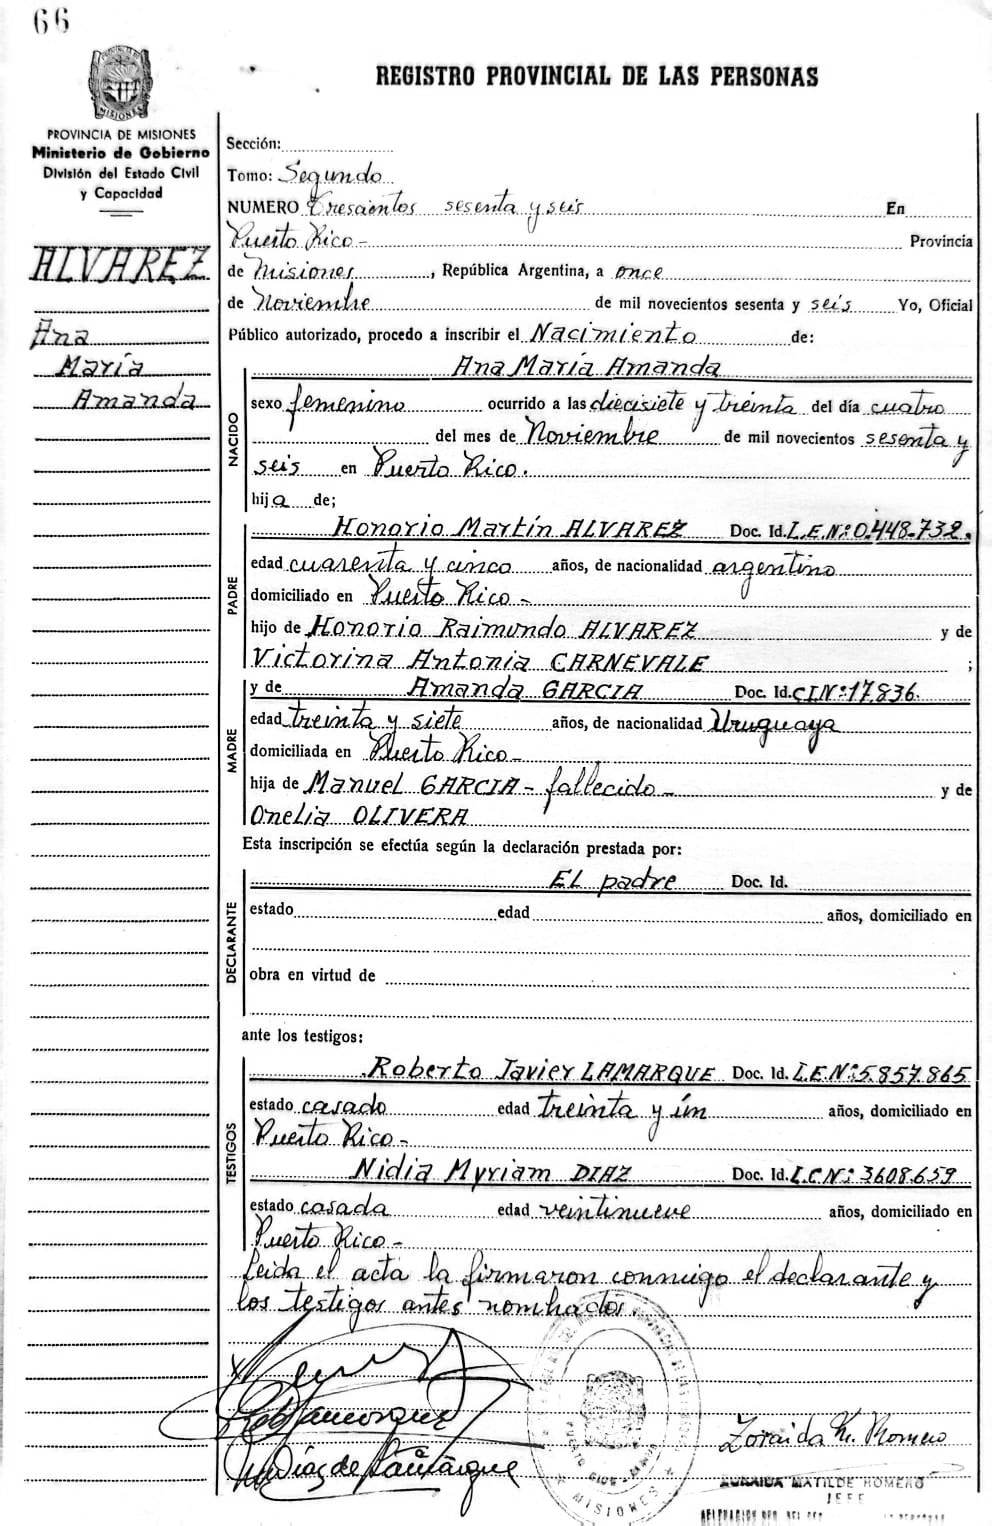 66
REGISTRO PROVINCIAL DE LAS PERSONAS
PROVINCIA DE MISIONES
Ministerio de Gobierno
División del Estado Civil
y Capacidad
ALVAREZ
Ana
María
Amanda
Sección:
Tomo: Segundo
NUMERO Trescientos sesenta y seis En
Puerto Rico - Provincia
de Misiones, República Argentina, a once
de Noviembre de mil novecientos sesenta y seis Yo, Oficial
Público autorizado, procedo a inscribir el Nacimiento de:
NACIDO
Ana María Amanda
sexo femenino ocurrido a las diecisiete y treinta del día cuatro
del mes de Noviembre de mil novecientos sesenta y
seis en Puerto Rico.
hija de;
PADRE
Honorio Martín ALVAREZ Doc. Id. L.E.Nº:0.448.732.
edad cuarenta y cinco años, de nacionalidad argentino
domiciliado en Puerto Rico -
hijo de Honorio Raimundo ALVAREZ y de
Victorina Antonia CARNEVALE ;
MADRE
y de Amanda GARCIA Doc. Id. CINº:17.836.
edad treinta y siete años, de nacionalidad Uruguaya
domiciliada en Puerto Rico -
hija de Manuel GARCIA - fallecido - y de
Onelia OLIVERA
Esta inscripción se efectúa según la declaración prestada por:
DECLARANTE
EL padre Doc. Id.
estado edad años, domiciliado en
obra en virtud de
ante los testigos:
TESTIGOS
Roberto Javier LAMARQUE Doc. Id. L.E.Nº:5.857.865
estado casado edad treinta y ún años, domiciliado en
Puerto Rico -
Nidia Myriam DIAZ Doc. Id. L.C.Nº: 3.608.659
estado casada edad veintinueve años, domiciliado en
Puerto Rico -
Leida el acta la firmaron conmigo el declarante y
los testigos antes nombrados.
Díaz de Lamarque
Zoraida M. Romero
ZORAIDA MATILDE ROMERO
JEFE
MISIONES